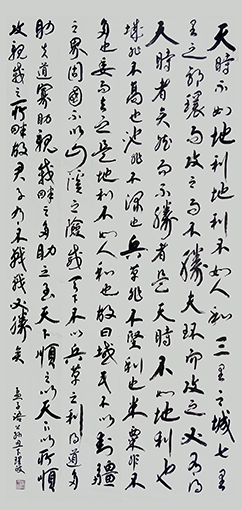 天時不如地利不如人和三里之城七里
之郭環而攻之而不勝夫環而攻之必有得
天時者矣然而不勝者是天時不如地利也
城非不高也池非不深也兵革非不堅利也米粟非不
多也委而去之是地利不如人和也故曰域民不以封疆
之界固國不以山溪之險威天下不以兵革之利得道多
助失道寡助親戚畔之多助之至天下順之以天下之所順
攻親戚之所畔故君子有不戰戰必勝矣
孟子